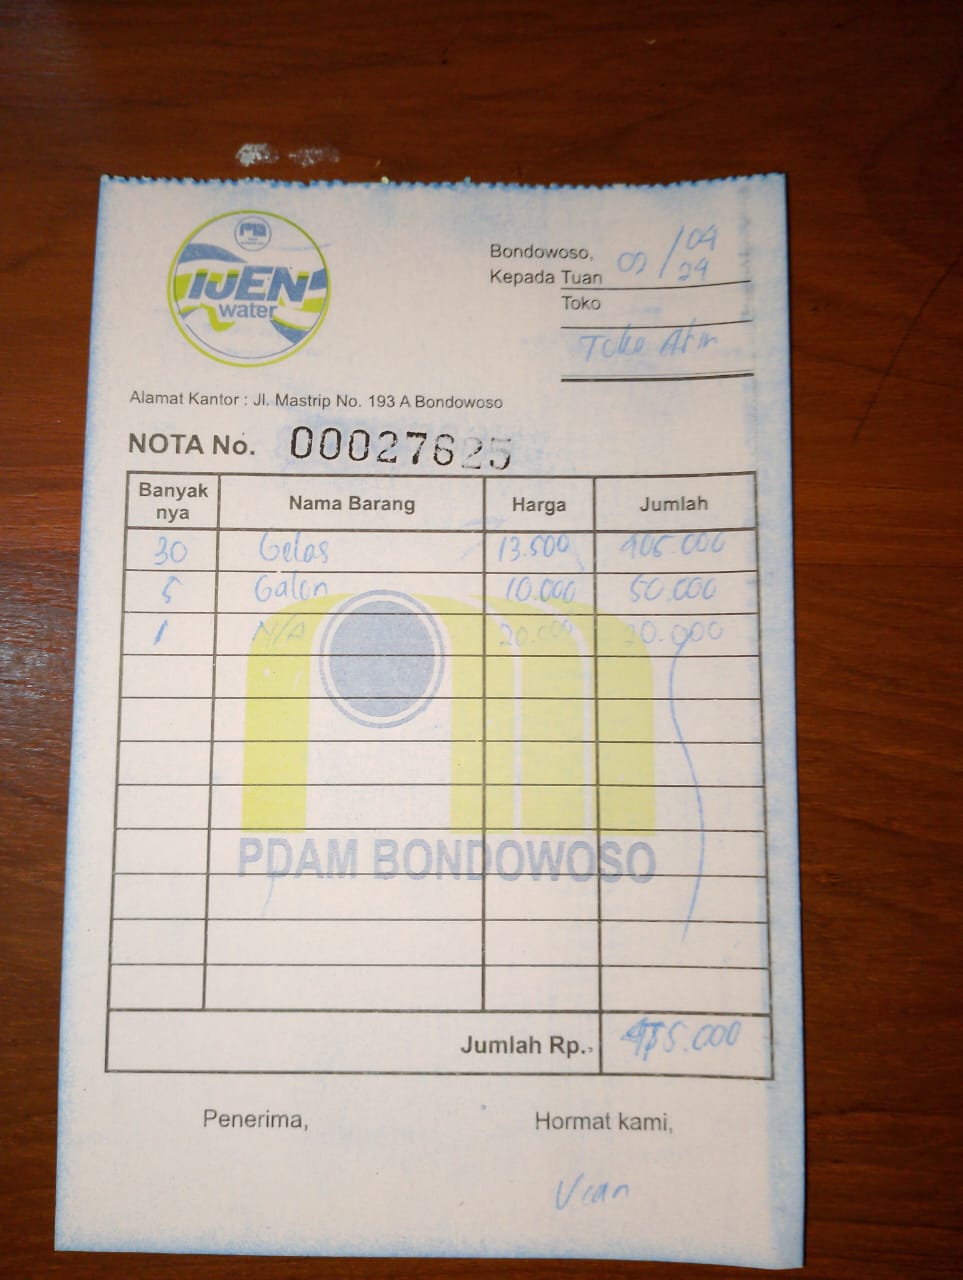 IJEN
water
Bondowoso, 02/04
24
Kepada Tuan
Toko
Toko
Alamat Kantor : Jl. Mastrip No. 193 A Bondowoso
NOTA No. 00027625
Banyak nya Nama Barang Harga Jumlah
30 Gelas 13.500 405.000
5 Galon 10.000 50.000
1 N/A 20.000 20.000
PDAM BONDOWOSO
Jumlah Rp. 000
Penerima, Hormat kami,